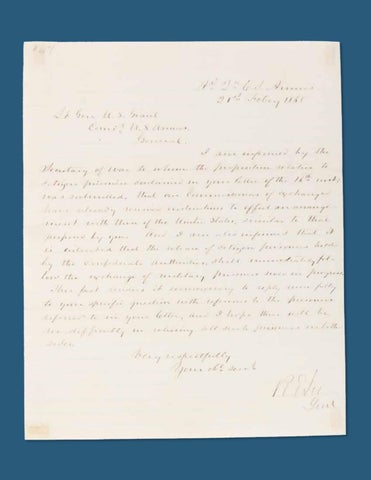 Hd Qrs C S Armies
21st Feby 1865
Lt Gen U. S. Grant
Comdg U. S. Armies
General
I am informed by the
Secretary of War to whom the proposition relative to
citizen prisoners contained in your letter of the 16th inst
was submitted, that our Commissioner of exchange
have already received instructions to effect an arrange
ment with those of the United States, similar to that
proposed by you. And I am also informed that it
is intended that the release of citizen prisoners held
by the Confederate authorities shall immediately fol-
low the exchange of military prisoners now in progress
This fact renders it unnecessary to reply more fully
to your specific question with reference to the prisoners
referred to in your letter, and I hope there will be
no difficulty in releasing all such prisoners on both
sides.
Very respectfully
Your obt servt
R E Lee
Genl